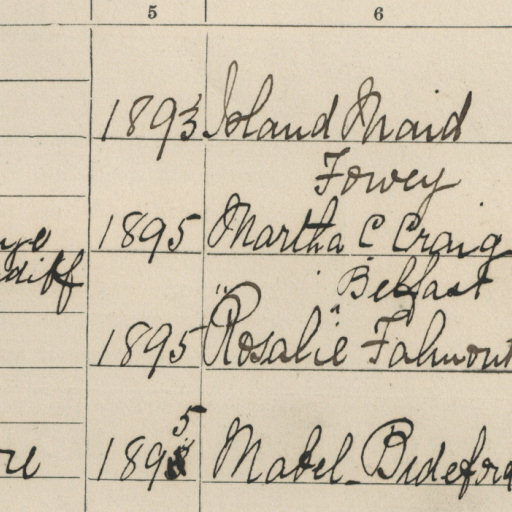 5 6
1893 Island Maid
Fowey
1895 Martha C Craig
Belfast
1895 "Rosalie" Falmout
5
189 Mabel Bideford